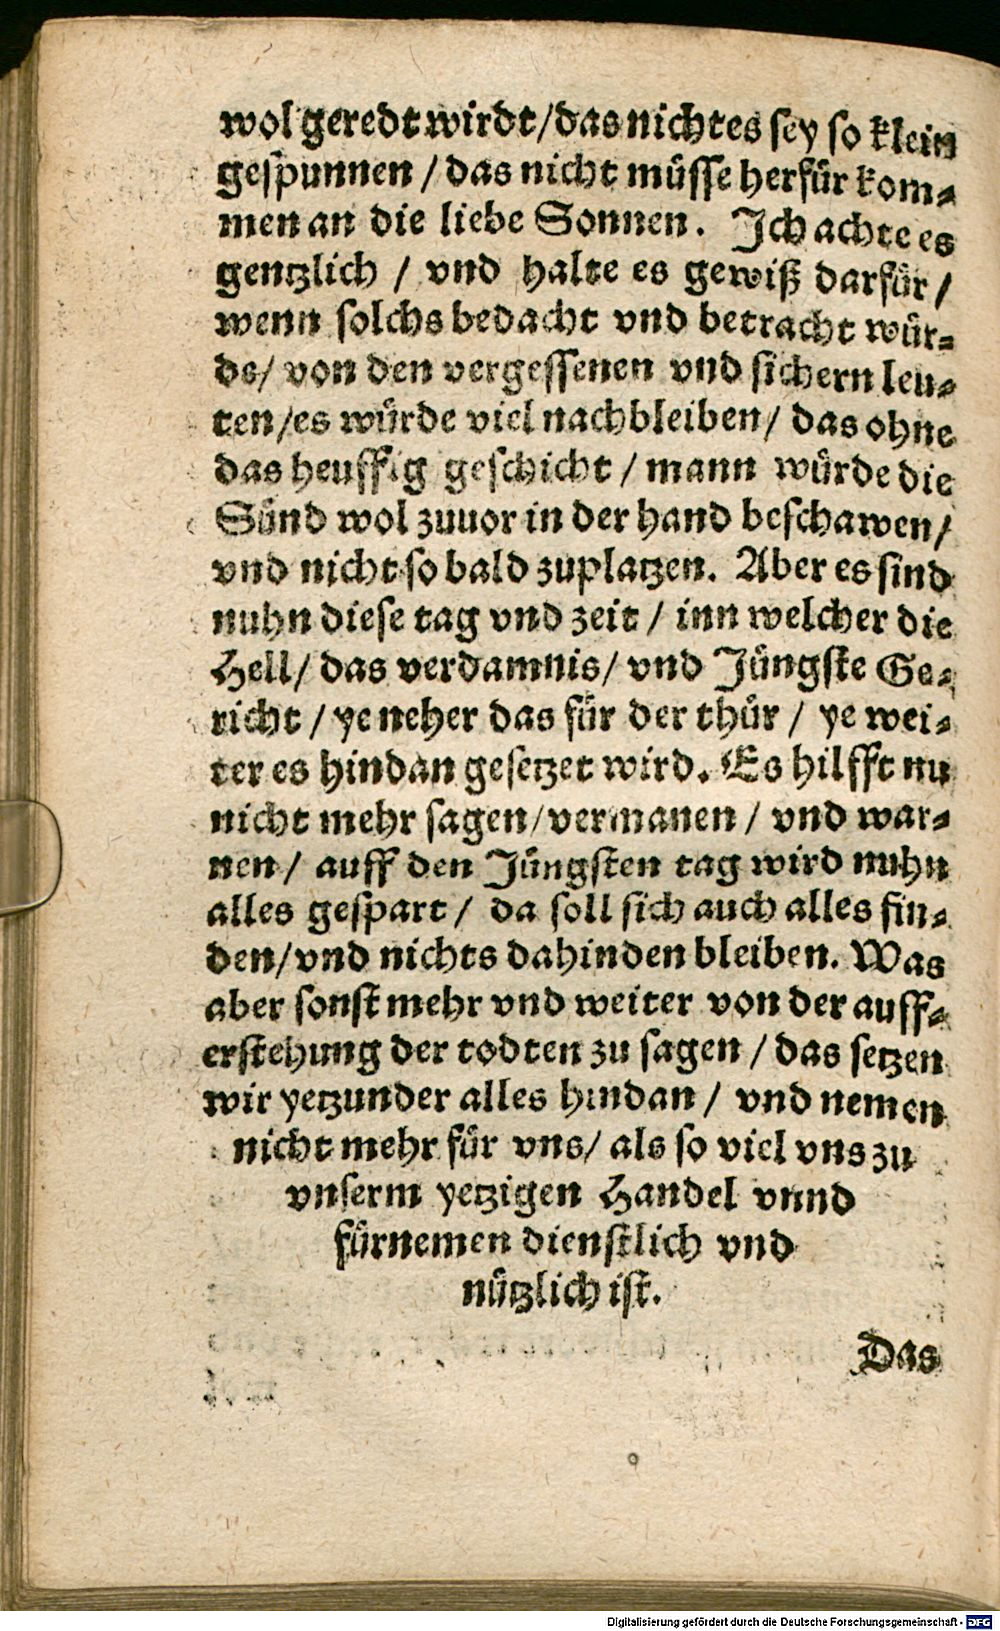 wol geredt wirdt/das nichtes sey so klein
gespunnen / das nicht müsse herfür kom-
men an die liebe Sonnen. Ich achte es
gentzlich / vnd halte es gewiß darfür /
wenn solchs bedacht vnd betracht wür-
de/ von den vergessenen vnd sichern leu-
ten/es würde viel nachbleiben/ das ohne
das heuffig geschicht / mann würde die
Sünd wol zuuor in der hand beschawen/
vnd nicht so bald zuplatzen. Aber es sind
nuhn diese tag vnd zeit / inn welcher die
Hell/ das verdamnis/ vnd Jüngste Ge-
richt / ye neher das für der thür / ye wei-
ter es hindan gesetzet wird. Es hilfft nu
nicht mehr sagen/vermanen / vnd war-
nen/ auff den Jüngsten tag wird nuhn
alles gespart/ da soll sich auch alles fin-
den/vnd nichts dahinden bleiben. Was
aber sonst mehr vnd weiter von der auff-
erstehung der todten zu sagen / das setzen
wir yetzunder alles hindan / vnd nemen
nicht mehr für vns/ als so viel vns zu
vnserm yetzigen Handel vnnd
fürnemen dienstlich vnd
nützlich ist.
Das
Digitalisierung gefördert durch die Deutsche Forschungsgemeinschaft - DFG